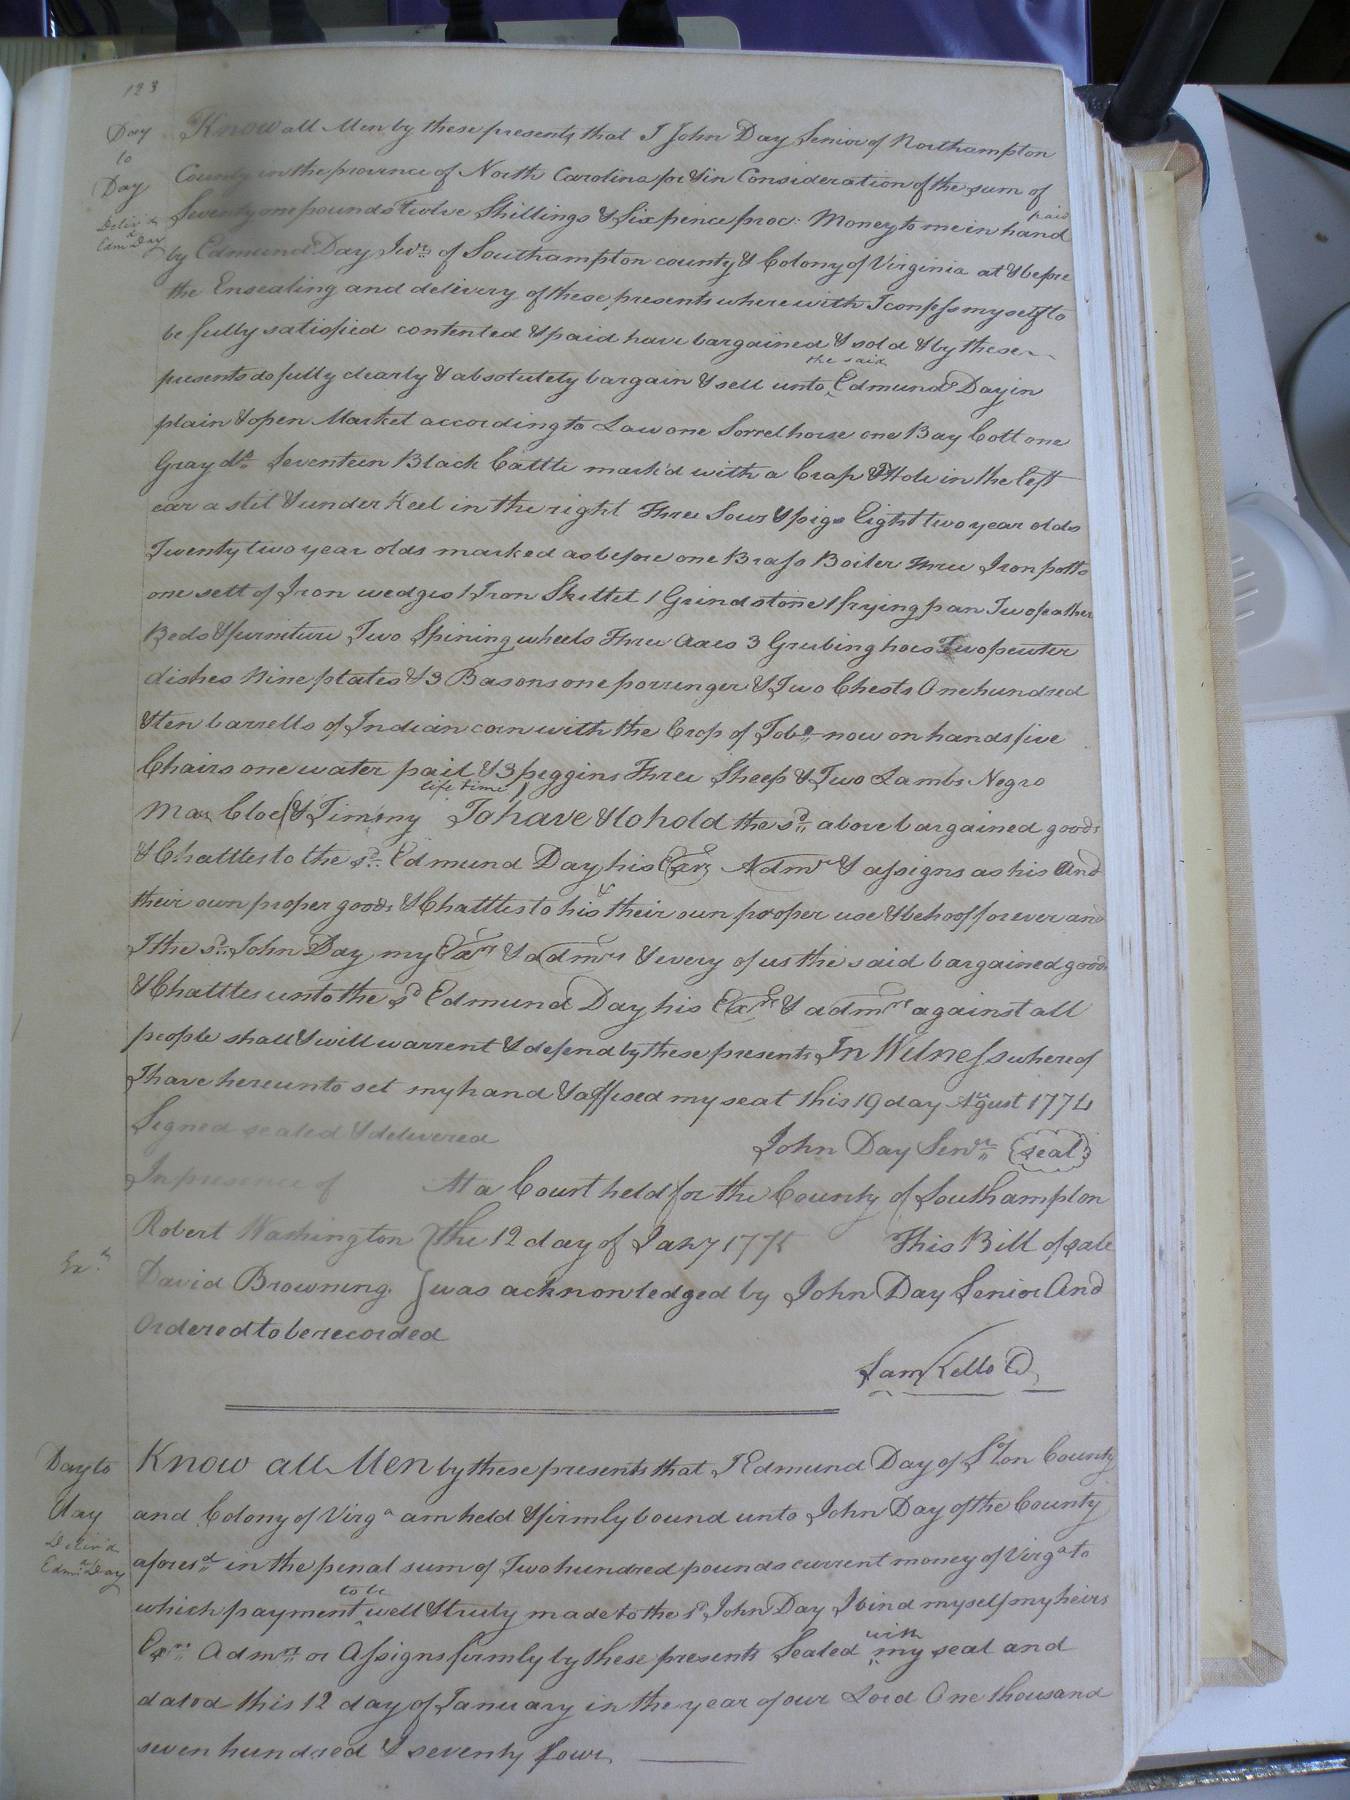 123
Day
to
Day
Deliv'd
Edmd Day
Know all Men by these presents that I John Day Senior of Northampton
County in the province of North Carolina for & in Consideration of the sum of
Seventy one pounds twelve Shillings & Sixpence proc. Money to me in hand paid
by Edmund Day Junr. of Southampton county & Colony of Virginia at & before
the Ensealing and delivery of these presents where with I confess myself to
be fully satisfied contented & paid have bargained & sold & by these
presents do fully clearly & absolutely bargain & sell unto the said Edmund Day in
plain & open Market according to Law one Sorrel horse one Bay Colt one
Gray do. Seventeen Black Cattle mark'd with a Crap & Hole in the left
ear a slit & under Keel in the right Three Sows & pigs Eight two year olds
Twenty two year olds marked as before one Brass Boiler Three Iron potts
one sett of Iron wedges 1 Iron Skittet 1 Grindstone 1 frying pan Two feather
Beds & furniture Two Spining wheels Three axes 3 Grubing hoes Two pewter
dishes Nine plates & 3 Basons one porringer & Two Chests One hundred
& ten barrells of Indian corn with the Crop of Tobo. now on hands five
Chairs one water pail & 3 piggins Three Sheep & Two Lambs Negro
life time
Cloe & Timmy To have & to hold the sd. above bargained goods
& Chattles to the sd. Edmund Day his Exrs Admrs & assigns as his And
their own proper goods & Chattles to his & their own proper use & behoof forever and
I the sd. John Day my Exrs & admrs & every of us the said bargained goods
& Chattles unto the sd Edmund Day his Exrs & admrs against all
people shall & will warrent & defend by these presents In Witness whereof
I have hereunto set my hand & affixed my seal this 19 day August 1774
Signed sealed & delivered
John Day Senr. seal
In presence of
At a Court held for the County of Southampton
Robert Washington
the 12 day of Jany 1775 This Bill of sale
Exd.
David Browning
was acknowledged by John Day Senior And
Ordered to be recorded
Sam Kello
Day to
Day
Deliv'd
Edmd Day
Know all Men by these presents that I Edmund Day of S'ton County
and Colony of Virga am held & firmly bound unto John Day of the County
aforesd. in the penal sum of Two hundred pounds current money of Virga to
which payment to be well & truly made to the sd John Day I bind myself my heirs
Exrs. Admrs. or Assigns firmly by these presents Sealed with my seal and
dated this 12 day of January in the year of our Lord One thousand
seven hundred & seventy four